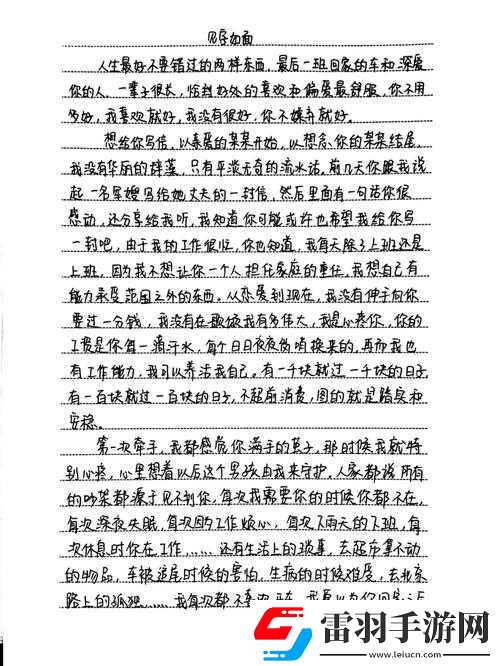 见字如面
人生最好不要错过的两样东西，最后一班回家的车和深爱
你的人，一辈子很长，恰到好处的喜欢和偏爱最舒服，你不用
多好，我喜欢就好，我没有很好，你不嫌弃就好。
想给你写信，以亲爱的某某开始，以想念你的某某结尾，
我没有华丽的辞藻，只有平淡无奇的流水话，前几天你跟我说
起一名军嫂写给她丈夫的一封信，然后里面有一句话你很
感动，还分享给我听，我知道你可能或许也希望我给你写
一封吧，由于我的工作很忙，你也知道，我每天除了上班还是
上班，因为我不想让你一个人担任家庭的重任，我想自己有
能力承受范围之外的东西。从恋爱到现在，我没有伸手向你
要过一分钱，我没有在歌颂我有多伟大，我是心疼你，你的
工资是你每一滴汗水，每个日日夜夜站岗换来的，再而我也
有工作能力，我可以养活我自己。有一千块就过一千块的日子
有一百块就过一百块的日子，不超前消费，图的就是踏实和
安稳。
第一次牵手，我都感觉你满手的茧子，那时候我就特
别心疼，心里想着以后这个男孩由我来守护。人家都说所有
的吵架都源于见不到你，每次我需要你的时候你都不在，
每次深夜失眠，每次因为工作烦心，每次下雨天的下班，每
次休息时你在工作……还有生活上的琐事，去超市拿不动
的物品，车被追尾时候的害怕，生病的时候难受，去北京
路上的孤独……我每次都
雷羽手游网
www.leiucn.com